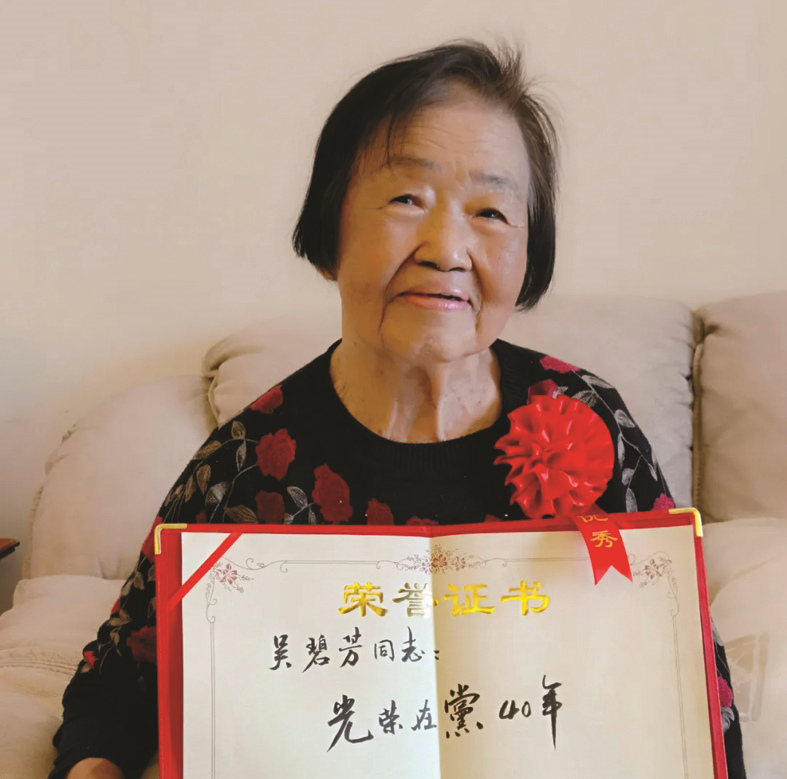 优秀
荣誉证书
吴碧芳同志：
光荣在黨40年